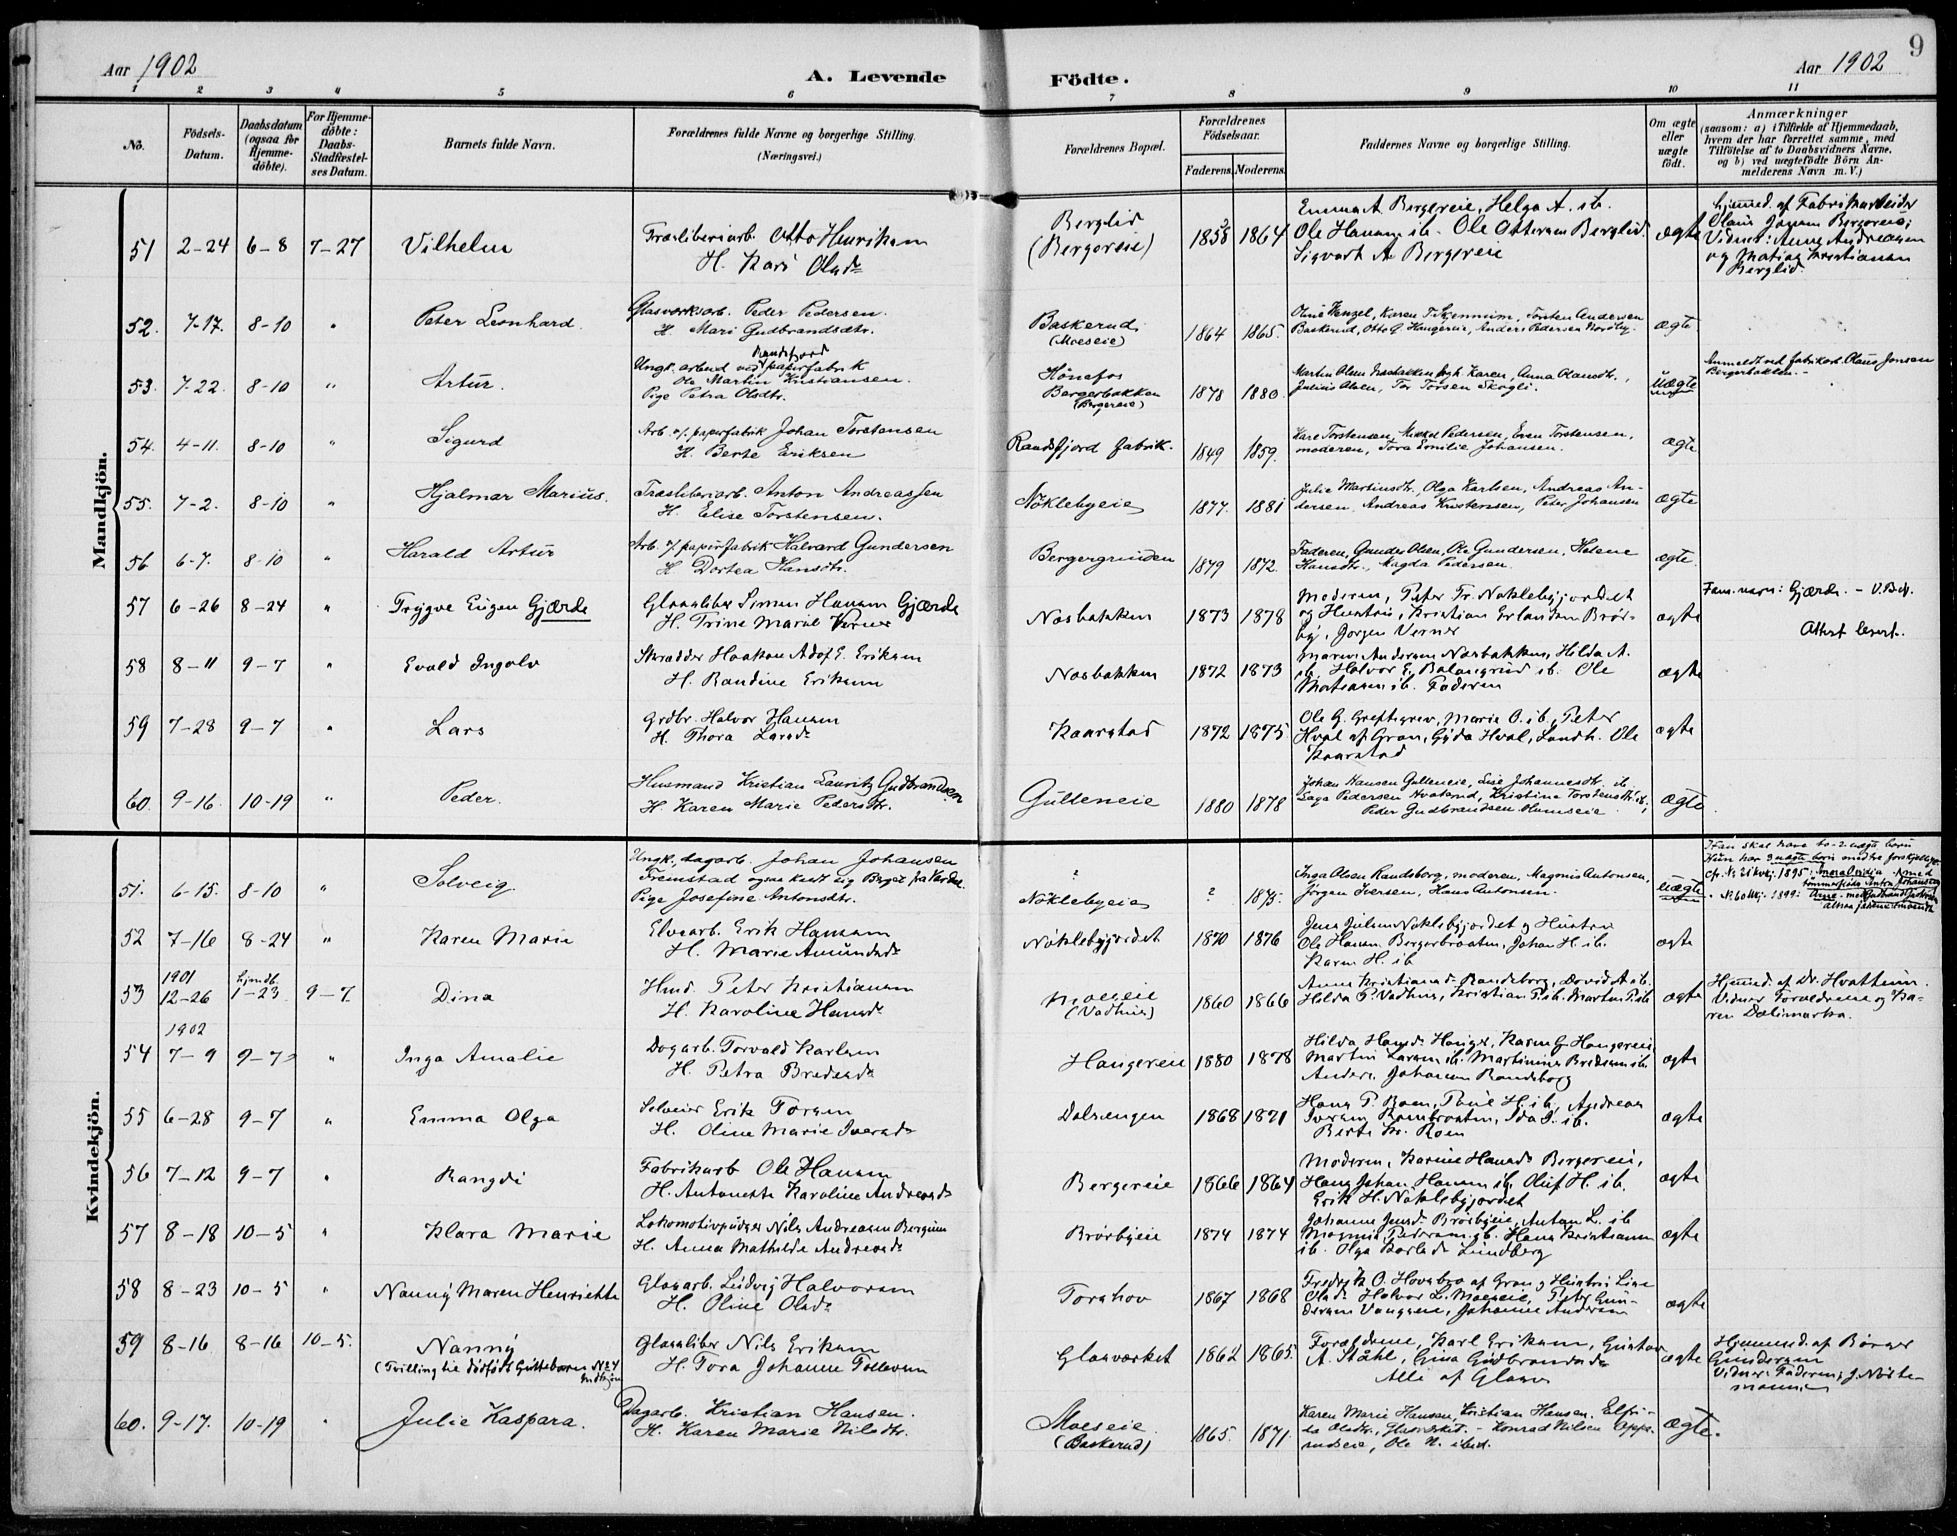 9
Aar 1902
A. Levende
Födte.
Aar 1902
1 2 3 4 5 6 7 8 9 10 11
No.
Födsels-
Datum.
Daabsdatum
(ogsaa for
Hjemme-
döbte).
For Hjemme-
döbte:
Daabs-
Stadfæstel-
ses Datum.
Barnets fulde Navn.
Forældrenes fulde Navne og borgerlige Stilling.
(Næringsvei.)
Forældrenes Bopæl.
Forældrenes
Födselsaar.
Faderens. Moderens.
Faddernes Navne og borgerlige Stilling.
Om ægte
eller
uægte
födt.
Anmærkninger
(saasom: a) i Tilfælde af Hjemmedaab,
hvem der har forrettet samme, med
Tilföielse af to Daabsvidners Navne,
og b) ved uægtefödte Börn An-
melderens Navn m. V.)
Mandkjön.
51 2-24 6-8 7-27 Vilhelm
Træsliberiarb. Otto Henriksen
H. Kari Olsdr
Berglid
(Bergereie)
1858 1864
Emma A. Bergereie, Helga A. ib.
Ole Hansen ib. Ole Ottersen Berglid.
Sigvart A Bergereie
ægte
hjemmed. af Fabrikarbeider
Olaus Jonsen Bergereie;
Vidner: Anna Andreasen
og Matias Kristiansen
Berglid.
52. 7-17. 8-10 " Peter Leonhard.
Glasværksarb. Peder Pedersen.
H. Mari Gudbrandsdtr.
Baskerud
(Moeseie)
1864 1865.
Oline Wenzel, Karen T. , Torsten Andersen
Baskerud, Otto G. Haugereie, Anders Pedersen Nordby.
ægte
53. 7-22. 8-10 " Artur.
Ungk. arbeid. ved Randsfjord papirfabrik
Ole Martin Kristiansen.
Pige Petra Olsdtr.
Hönefos
Bergerbakken
(Bergereie)
1878 1880.
Martin Olsen Næsbakken, Karen, Anna Olausdtr.,
Julius Olsen, Tor Torsen Skogli.
uægte
Anmeldt ved fabrikarb. Olaus Jonsen
Bergerbakken.-
54. 4-11. 8-10 " Sigurd
Arb. v/ papirfabrik Johan Torstensen
H. Berte Eriksen
Randsfjord fabrik.
1849 1859.
Kari Torstensen, Mikkel Pedersen, Even Torstensen,
moderen, Tora Emilie Johansen.
ægte
55. 7-2. 8-10 " Hjalmar Marius.
Træsliberiarb. Anton Andreassen
H. Elise Torstensen.
Nöklebyeie
1877. 1881
Julie Martinsdtr., Olga Karlsen, Andreas An-
dersen, Andreas Kristensen, Peter Johansen
ægte
56 6-7. 8-10 " Harald Artur
Arb. v/ papirfabrik Halvard Gundersen
H. Dortea Hansdtr.
Bergergrinden
1879 1872.
Faderen, Gunder Olsen, Ole Gundersen, Helene
Hansdtr., Magda Pedersen.
ægte.
57 6-26 8-24 " Trygve Eugen Gjærde
Glassliber Simen Hansen Gjærde
H. Trine Marie Verner
Næsbakken
1873 1878
Moderen, Peter Fr. Nöklebyjordet
og Hustru, Kristian Erlandsen Brör-
by, Jörgen Verner
ægte
Fam.navn: Gjærde. - V.Bg.
Attest levert.
58 8-11 9-7 " Evald Ingolv
Skrædder Haakon Adof E. Eriksen
H. Randine Eriksen
Næsbakken
1872 1873
Maren Andersen Næsbakken, Hilda A.
ib., Halvor E. ib. Ole
Matiasen ib. Faderen
ægte
59 7-28 9-7 " Lars
Grdbr. Halvor Hansen
H. Thora Larsdr
Kaarstad
1872 1875
Ole G. Greftegrev, Marie O. ib., Peter
Hval af Gran, Gyda Hval, Landh. Ole
Kaarstad
ægte
60. 9-16. 10-19 " Peder.
Husmand Kristian Lauritz Gudbrandsen
H. Karen Marie Pedersdtr.
Gulleneie
1880 1878
Johan Hansen Gulleneie, Lise Johannesdtr. ib.
Pedersen, Kristine Torstensdtr. ib.,
Peder Gudbrandsen
ægte
Kvindekjön.
51. 6-15. 8-10 " Solveig.
Ungk., dagarb. Johan Johansen
Fremstad ogsaa kaldt sig Berget fra Vardal
Pige Josefine Antonsdtr.
?
Nöklebyeie
? 1875.
Inga Olsen Randsborg, moderen, Magnus Antonsen,
Jörgen Iversen, Hans Antonsen.
uægte
Han skal have to-2 uægte börn
Hun har 3 uægte börn med tre forskjellige.
52 7-16 8-24 " Karen Marie
Elvearb. Erik Hansen
H. Marie Amundsdr
Nöklebyjordet
1870 1876
Jens Julsen Nöklebyjordet og Hustru
Ole Hansen Bergerbraaten, Johan H. ib.
Karen H. ib
ægte
53 1901 12-26 hjmdb. 1-23 9-7 Dina
Husmd. Peter Kristiansen
H. Karoline Hansdr
Moeseie
(Vadhus)
1860 1866
Anne Kristiansd. Randsborg, David A. ib.
Hilda P. Vadhus, Kristian P. ib. Martin P. ib
ægte
Hjemmed. af Dr. Hvattum.
Vidner Forældrene og Ka-
ren Dælimarka.
54 1902 7-9 9-7 " Inga Amalie
Dagarb. Torvald Karlsen
H. Petra Bredesdr
Haugereie
1880 1878
Hilda Hansdr. Hauger, Karen G. Haugereie,
Martin Larsen ib. Martinius Bredesen ib.
Anders Johansen Randsborg
ægte
55 6-28 9-7 " Emma Olga
Selveier Erik Torsen
H. Oline Marie Iversdr
Dalsengen
1868 1871
Hans P. Roen, Pauli H. ib, Andreas
Iversen, Ida I. ib.
Berte Kr. Roen
ægte
56 7-12 9-7 " Rangdi
Fabrikarb Ole Hansen
H. Antonette Karoline Andreasdr
Bergereie
1866 1864
Moderen, Karine Hansdr Bergereie,
Hans Johan Hansen ib, Oluf H. ib.
Erik H. Nöklebyjordet
ægte
57 8-18 10-5 " Klara Marie
Lokomotivpudser Nils Andreasen Bergum
H. Anna Mathilde Andreasdr
Brörbyeie
1874 1874
Johanne Jensdr. Brörbyeie, Anton L. ib
Magnus Pedersen ib. Hans Kristiansen
ib. Olga Karlsdr Lundberg
ægte
58 8-23 10-5 " Nanny Maren Henriette
Glasarb. Ludvig Halvorsen
H. Oline Olsdr
Torshov
1867 1868
Fredrik O. Hovsbro af Gran og Hustru Lina
Olsdr Halvor L. Moeseie, Peter Gun-
dersen Vangseie, Johanne Andersen
ægte
59 8-16 8-16 10-5. Nanny
(Tvilling til dödfödt Guttebarn No 4
Mdkjön)
Glassliber Nils Eriksen
H. Tora Johanne Tollevsen
Glasværket
1862 1865
Forældrene, Karl Eriksen, Gustav
A. Ståhl, Gina Gudbrandsdr
Alle af Glasv.
ægte
Hjemmed. af Börger
Gundersen
Vidner: Faderen; J. Nörte-
mann
60. 9-17. 10-19 " Julie Kaspara.
Dagarb. Kristian Hansen.
H. Karen Marie Nilsdtr.
Moeseie
(Baskerud)
1865. 1871.
Karen Marie Hansen, Kristian Hansen. Elfri-
da Olsdtr., Glasværket. - Konrad Nilsen Opper-
udseie, Ole N. ibid.
ægte.